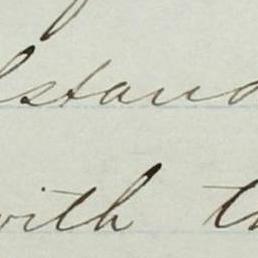 stand
with th